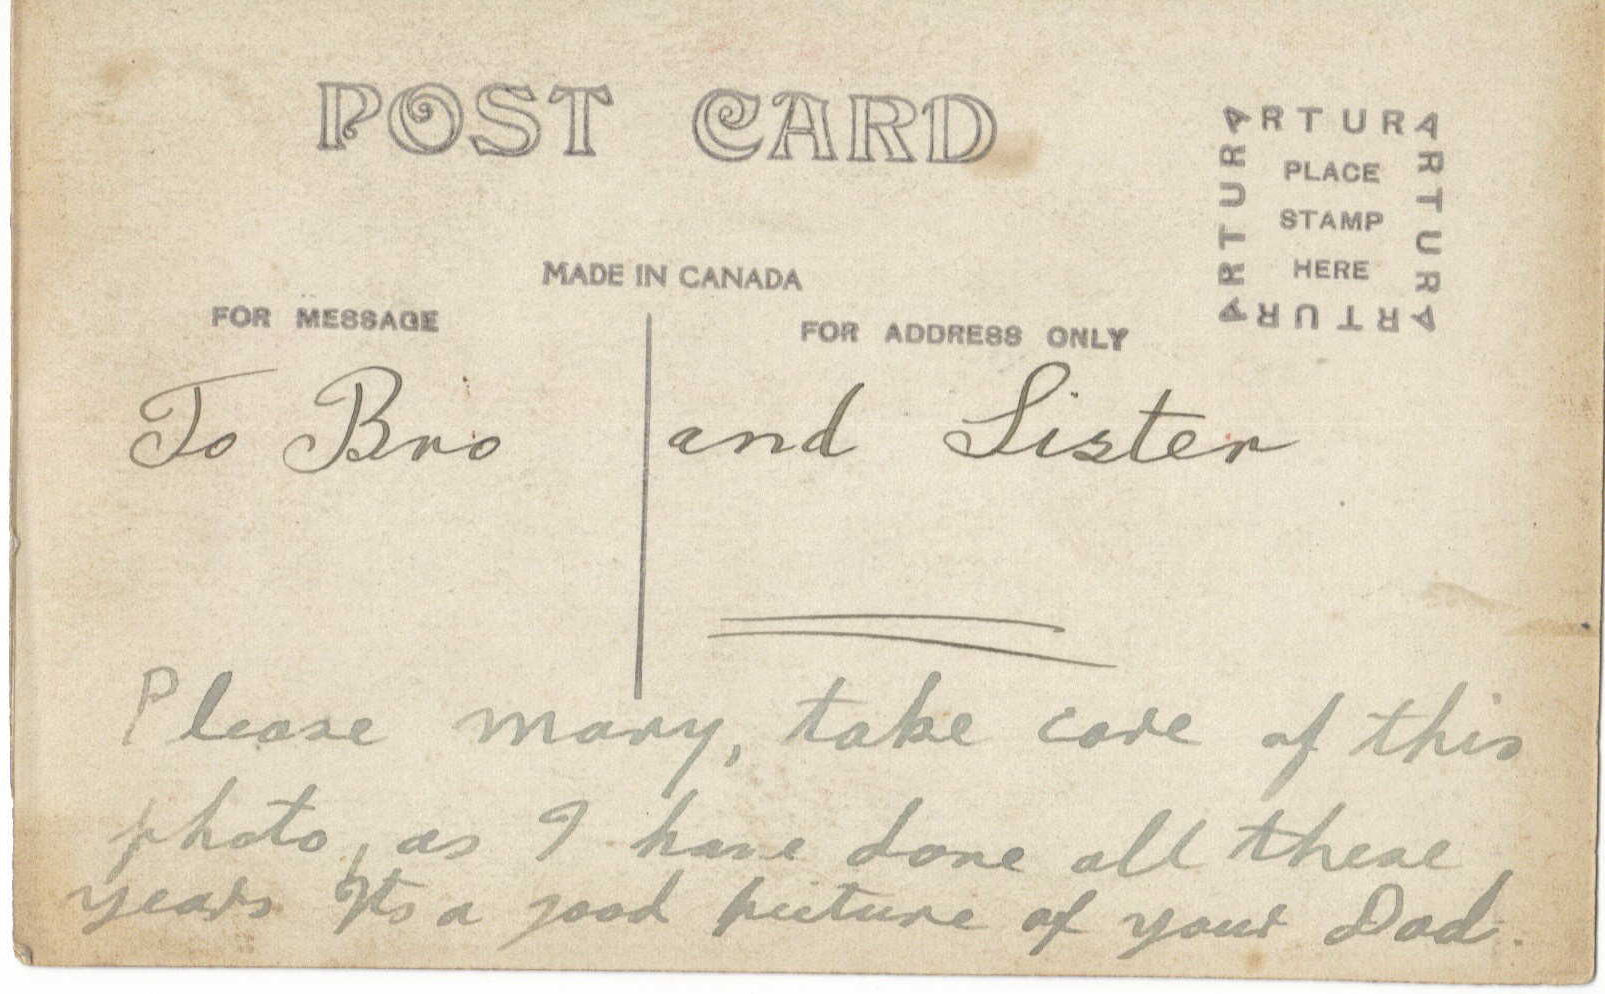 POST CARD
ARTURA
ARTURA
ARTURA
ARTURA
PLACE
STAMP
HERE
MADE IN CANADA
FOR MESSAGE
FOR ADDRESS ONLY
To Bro and Sister
Please mary, take care of this
photo, as I have done all these
years Its a good picture of your Dad.